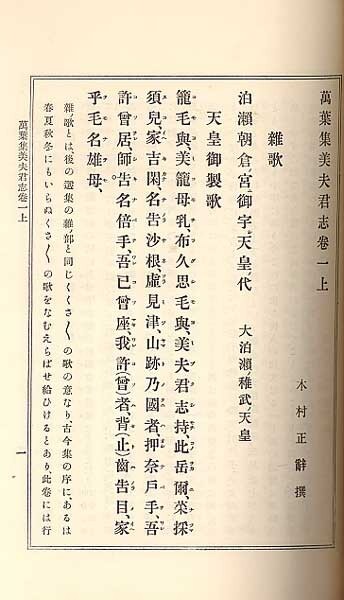 萬葉集美夫君志卷一上
木村正辭撰
雜歌
泊瀨朝倉宮御宇天皇代 大泊瀨稚武天皇
天皇御製歌
籠毛與、美籠母乳、布久思毛與、美夫君志持、此岳爾、菜採
須兒、家吉閑、名告沙根、虛見津、山跡乃國者、押奈戶手、吾
許曾居、師告名倍手、吾己曾座、我許(曾)者、背(止)齒告目、家
乎毛名雄母、
雜ノ歌とは、後の選集の雜ノ部と同じくくさ〴〵の歌の意なり、古今集の序に、あるは
春夏秋冬にもいらぬくさ〴〵の歌をなむえらばせ給ひけるとあり、此卷には行
萬葉集美夫君志卷一上
一